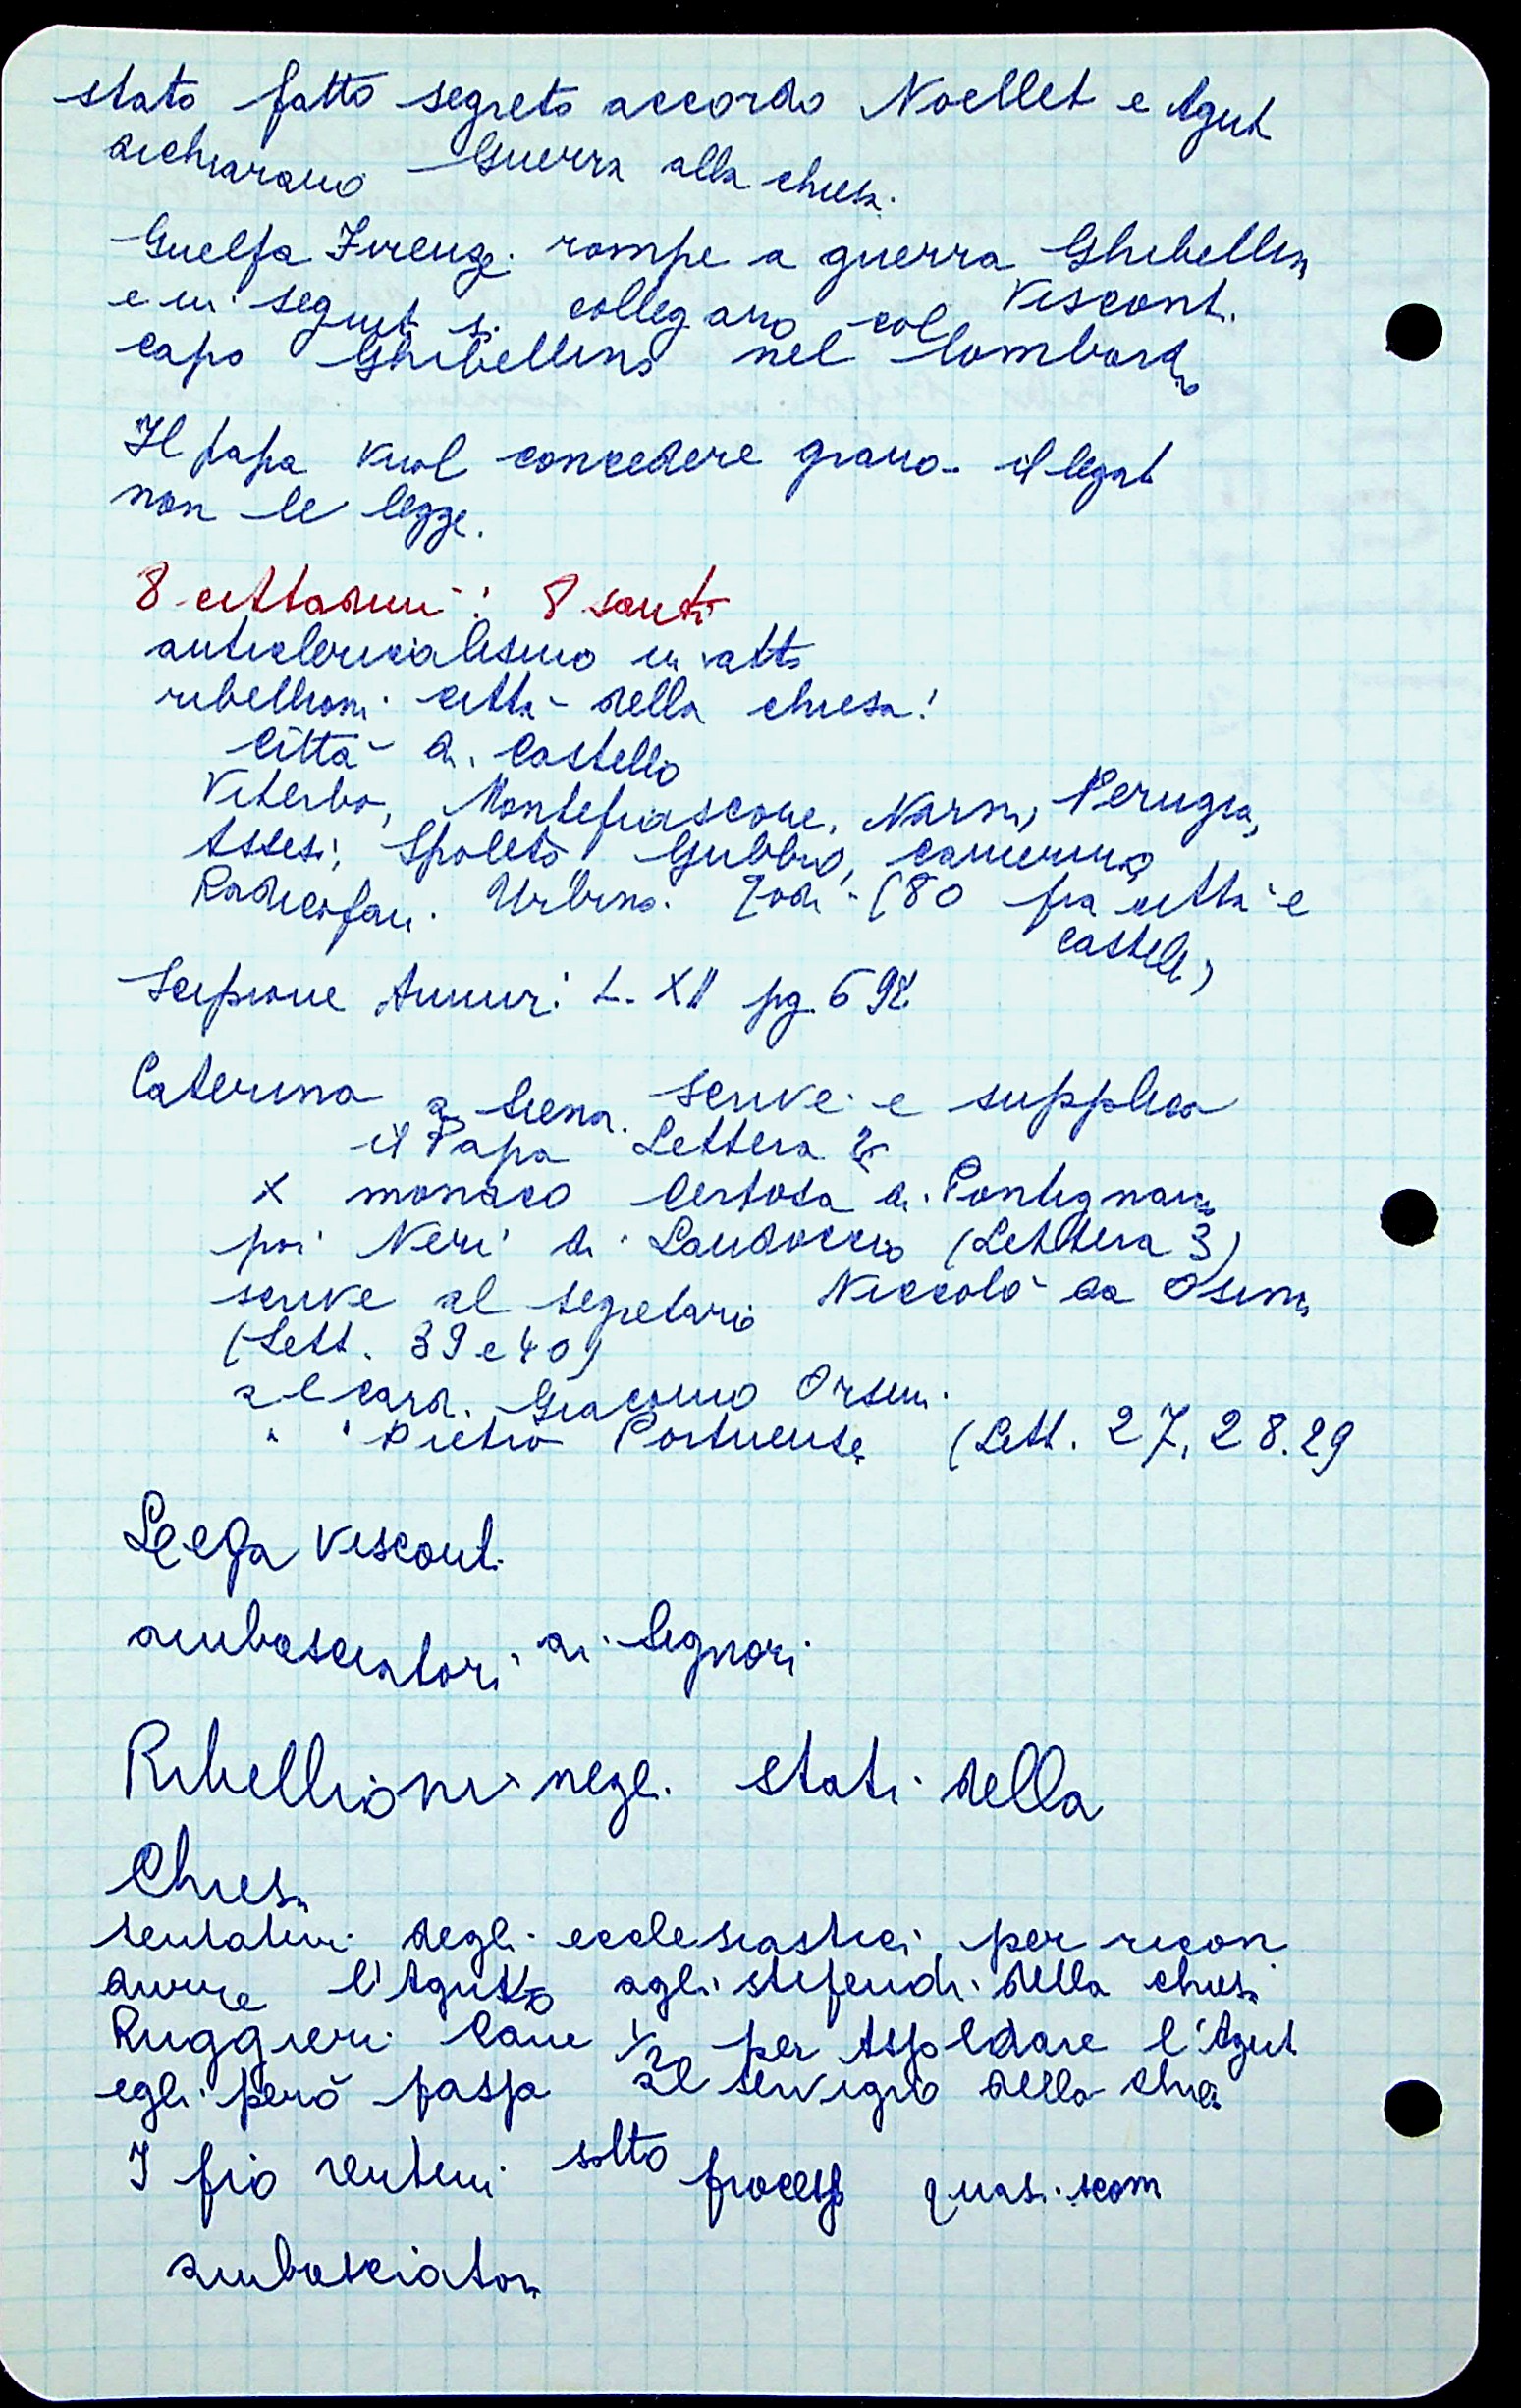 stato fatto segreto accordo Noellet e Agut
dichiarano Guerra alla chiesa.
Guelfa Firenze. rompe a guerra Ghibellin
e in seguit si collegano col Viscont.
capo Ghibellino nel Lombardo
Il papa vuol concedere grano - il legat
non le legge.
8 cittadini! 8 santi
anticlericalismo in atto
ribellioni città della chiesa!
Città di Castello
Viterbo, Montefiascone, Narni, Perugia,
Assisi, Spoleto, Gubbio, Camerino,
Radicofani. Urbino. Todi - (80 fra città e
castelli)
Scipione Ammir: L. XII pg. 692
Caterina a Siena. scrive e supplica
il Papa Lettera
x monaco Certosa di Pontignano
poi Neri di Landoccio (Lettera 3)
scrive al segretario Niccolò da Osimo
(Lett. 39 e 40)
al Card. Giacomo Orsini.
" " Pietro Portuense (Lett. 27, 28. 29
Lega Visconti
ambasciatori ai Signori
Ribellioni negli stati della
Chiesa
tentativi degli ecclesiastici per ricon
durre l'Aguto agli stipendi della chiesa
Ruggieri Cane per Assoldare l'Agut
egli però passa al servigio della chiesa
I fio sotto processo quasi
ambasciatori